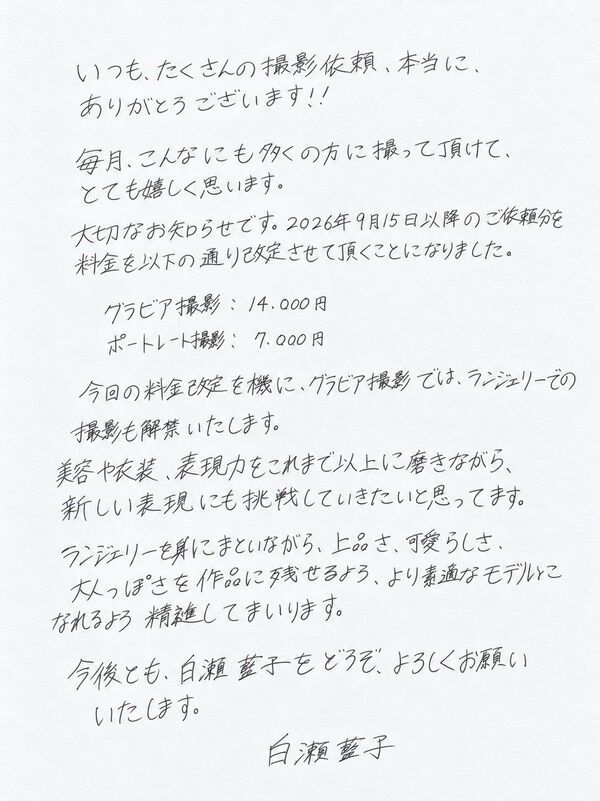 いつも、たくさんの撮影依頼、本当に、
ありがとうございます!!
毎月、こんなにも多くの方に撮って頂けて、
とても嬉しく思います。
大切なお知らせです。2026年9月15日以降のご依頼分を
料金を以下の通り改定させて頂くことになりました。
グラビア撮影: 14.000円
ポートレート撮影: 7.000円
今回の料金改定を機に、グラビア撮影では、ランジェリーでの
撮影も解禁いたします。
美容や衣装、表現力をこれまで以上に磨きながら、
新しい表現にも挑戦していきたいと思ってます。
ランジェリーを身にまといながら、上品さ、可愛らしさ、
大人っぽさを作品に残せるよう、より素適なモデルとこ
なれるよう精進してまいります。
今後とも、白瀬藍子をどうぞ、よろしくお願い
いたします。
白瀬藍子